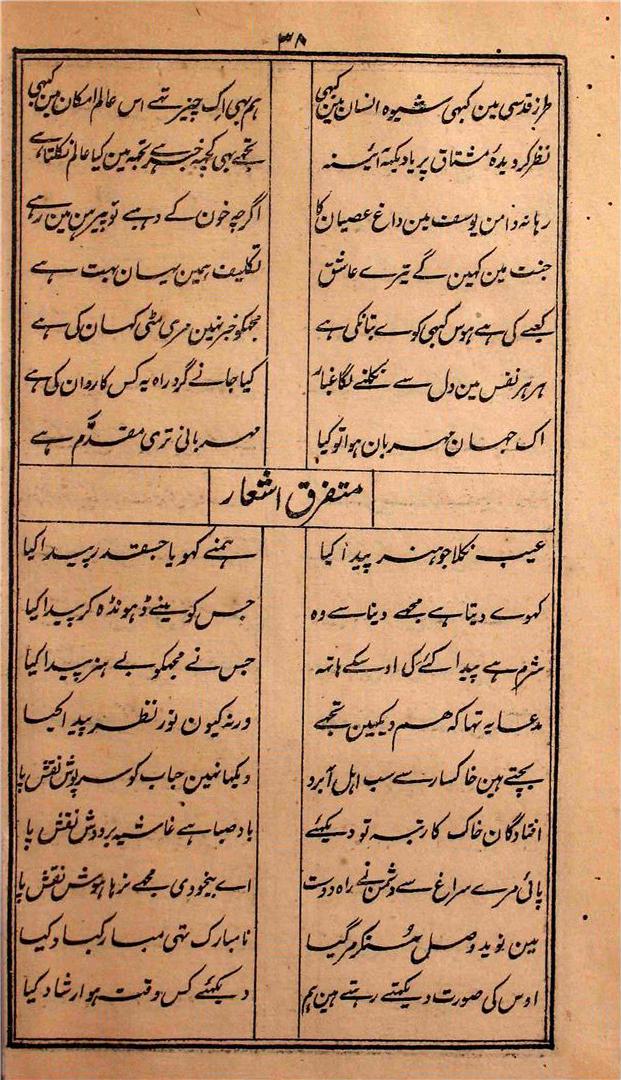 ۳۸
طرز قدسی مین کبہی شیوہ انسان مین کبہی ہم بہی اک چیز تہے اس عالم امکان مین کبہی
نظر کر دیدۂ مشتاق پر یا دیکہہ آئینہ تجہے بہی کچہہ خبر ہے تجہہ مین کیا عالم نکلتا ہے
رہا نہ دامن یوسف مین داغ عصیان کا اگرچہ خون کے دہبے تو پیرہن مین رہے
جنت مین کہین گے تیرے عاشق تکلیف ہمین یہان بہت ہے
کعبے کی ہے ہوس کبہی کوے بتانکی ہے مجہکو خبر نہین مری مٹی کہان کی ہے
ہر ہر نفس مین دل سے نکلنے لگا غبار کیا جانے گرد راہ یہ کس کاروان کی ہے
اک جہان مہربان ہوا تو کیا مہربانی تری مقدّم ہے
متفرق اشعار
عیب نکلا جو ہنر پیدا کیا ہمنے کہویا جسقدر پیدا کیا
کہوے دیتا ہے مجہے دینا سے وہ جس کو مینے ڈہونڈہ کر پیدا کیا
شرم ہے پیدا کئے کی اوسکے ہاتہہ جس نے مجہکو بے ہنر پیدا کیا
مدعا یہ تہا کہ ہم دیکہین تجہے ورنہ کیون نور نظر پیدا کیا
بچتے ہین خاکسار سے سب اہل آبرو دیکہا نہین حباب کو سرپوش نقش پا
افتادگان خاک کا رتبہ تو دیکہئے باد صبا ہے غاشیہ بردوش نقش پا
پائی مرے سراغ سے دشمن نے راہ دوست اے بیخودی مجہے نرہا ہوش نقش پا
مین نوید وصل سُنکر مر گیا نا مبارک تہی مبارکباد کیا
اوس کی صورت دیکہتے رہتے ہین ہم دیکہئے کس وقت ہو ارشاد کیا